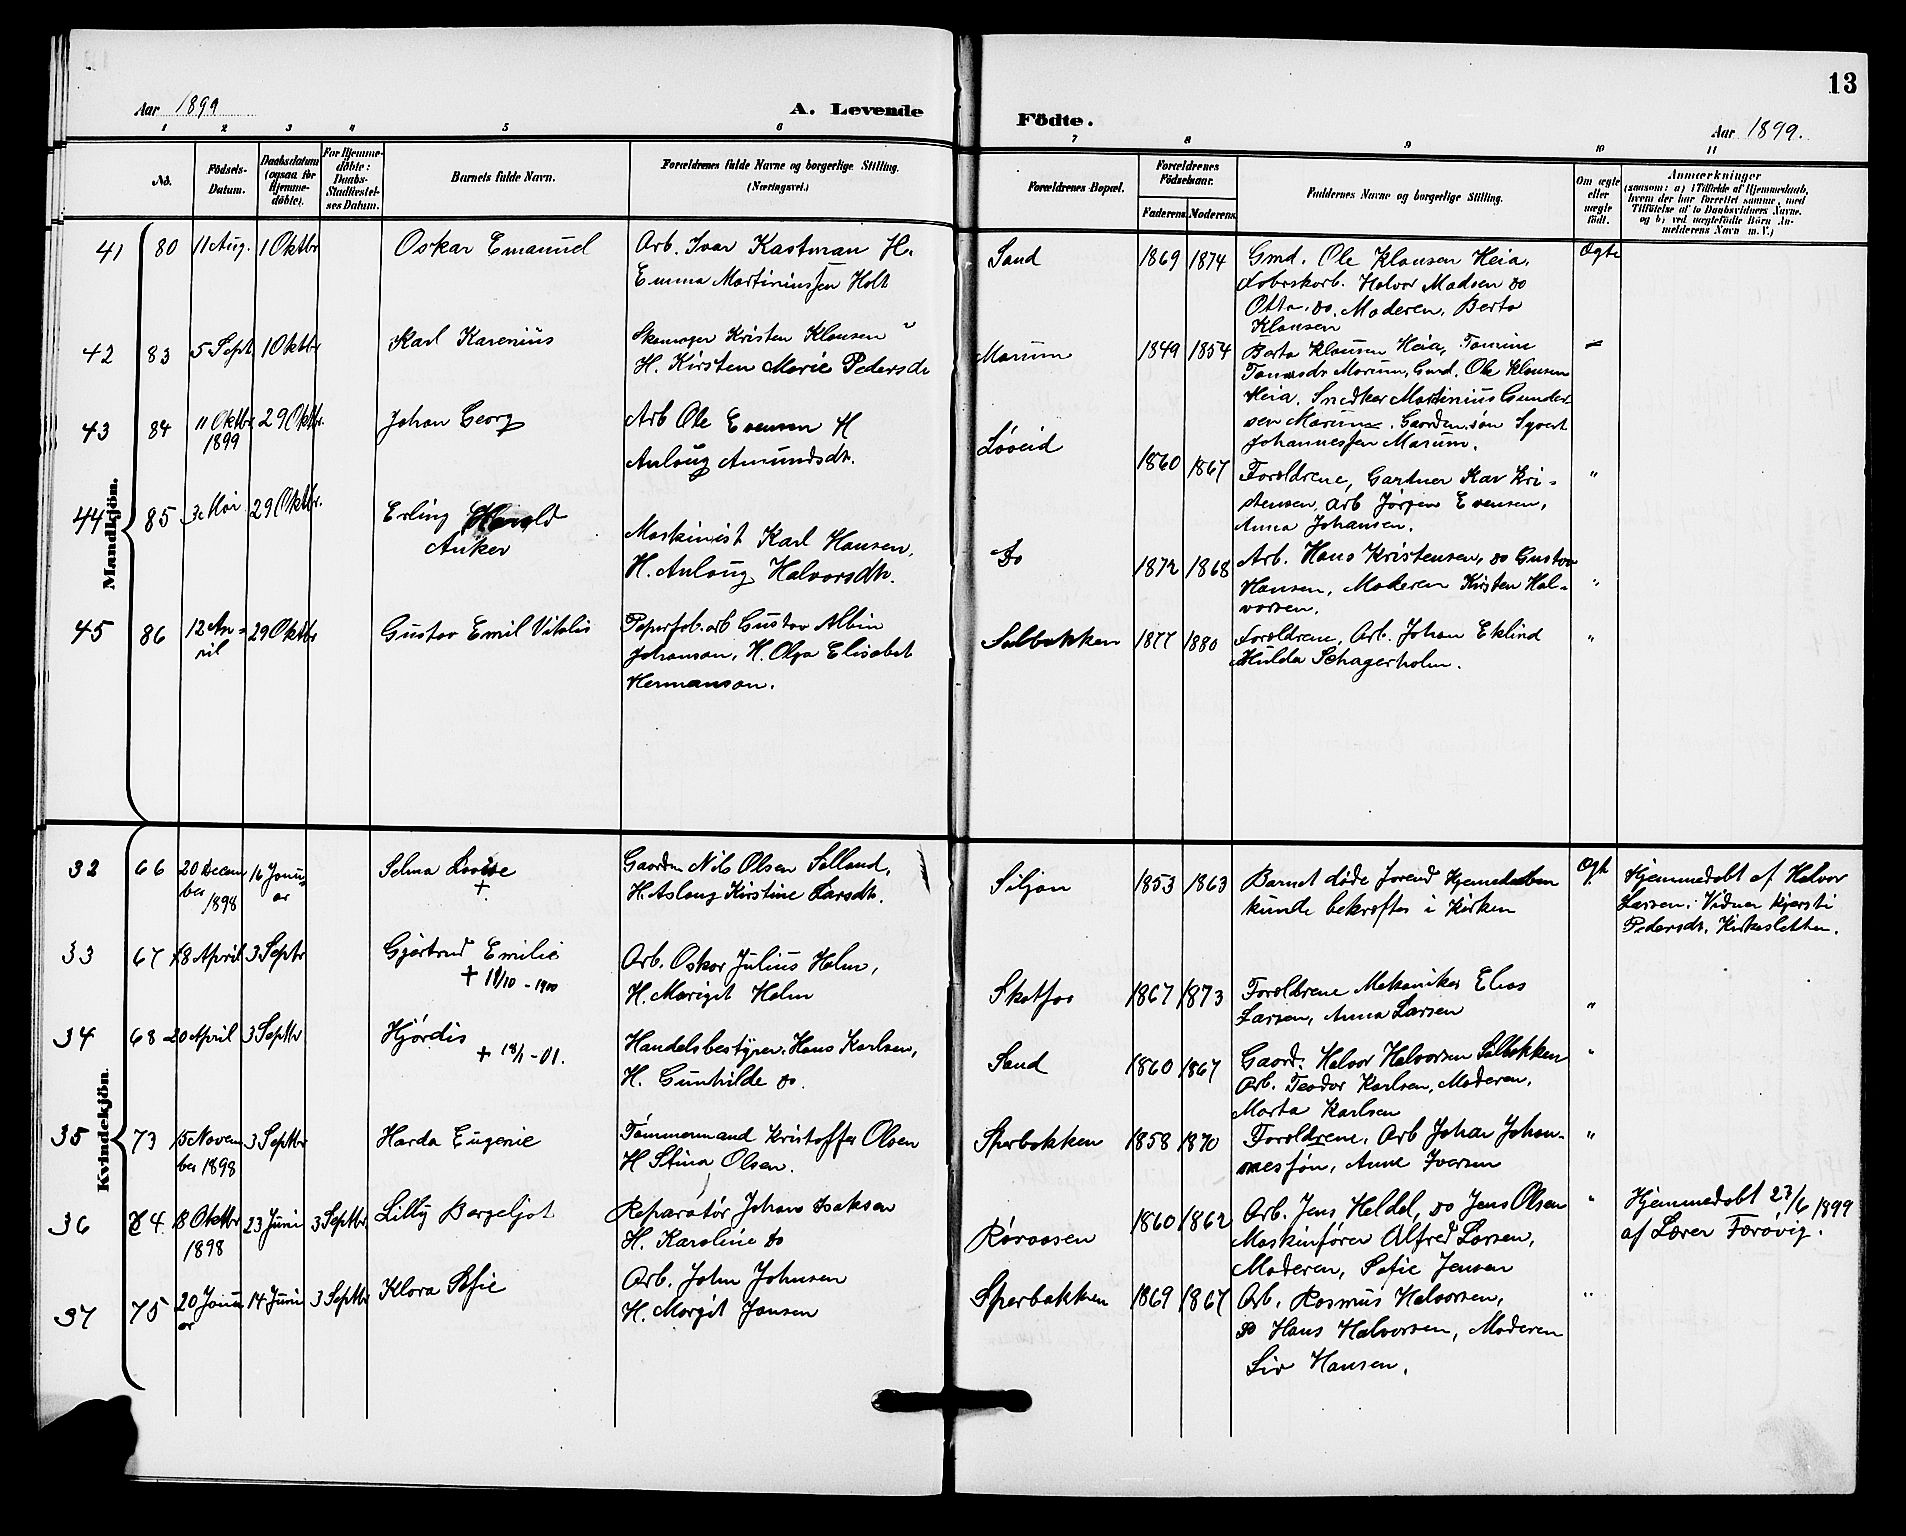 13
Aar 1899
A. Levende
Födte.
Aar 1899.
1 2 3 4 5 6 7 8 9 10 11
No.
Födsels-
Datum.
Daabsdatum
(ogsaa for
Hjemme-
döbte).
For Hjemme-
döbte:
Daabs-
Stadfæstel-
ses Datum.
Barnets fulde Navn.
Forældrenes fulde Navne og borgerlige Stilling.
(Næringsvei.)
Forældrenes Bopæl.
Forældrenes
Födselsaar.
Faderens. Moderens.
Faddernes Navne og borgerlige Stilling.
Om ægte
eller
uægte
födt.
Anmærkninger
(saasom: a) i Tilfælde af Hjemmedaab,
hvem der har forrettet samme, med
Tilföielse af to Daabsvidners Navne,
og b) ved uægtefödte Börn An-
melderens Navn m. V.)
Mandkjön.
41 80 11 Aug. 1 Oktbr Oskar Emanuel
Arb. Ivar Kastman H.
Emma Martiniussen Holt
Sand 1869 1874
Gmd. Ole Klausen Heia,
Fabrikarb. Halvor Madsen do
Otto do. Moderen, Berta
Klausen
Ægte
42 83 5 Sept 1 Oktbr Karl Karenius
Skomager Kristen Klausen
H. Kirsten Marie Pedersdr
Marum 1849 1854
Berta Klausen Heia, Tomine
Tomasdr Marum, Gmd. Ole Klausen
Heia. Snedker Martinius Gunder
sen Marum. Gaarden.søn Syvert
Johannessen Marum.
43 84 11 Oktbr
1899
29 Oktbr. Johan Georg
Arb Ole Evensen H
Anlaug Amundsdr.
Løveid 1860 1867
Forældrene, Gartner Kar Kri-
stensen, Arb Jørgen Evensen,
Anna Johansen.
"
44 85 3 Mai 29 Oktbr. Erling Harald
Anker
Maskinist Karl Hansen,
H. Anlaug Halvorsdr.
Do 1872 1868
Arb. Hans Kristensen, do Gustav
Hansen, Moderen Kirsten Hal-
vorsen.
"
45 86 12 Ap-
ril
29 Oktbr Gustav Emil Vitalis
Papirfab.arb Gustav Albin
Johanson, H. Olga Elisabet
Hermanson.
Solbakken 1877 1880
Forældrene, Arb. Johan Eklind
Hulda Schagerholm.
"
Kvindekjön.
32 66 20 Decem
ber 1898
16 Janu-
ar
Selma Lovise
+
Gaardm Nils Olsen Solland,
H. Aslaug Kirstine Larsdr.
Siljan 1853 1863
Barnet døde forend Hjemmedaaben
kunde bekræftes i Kirken
Ægte
Hjemmedøbt af Halvor
Larsen. Vidner Kjersti
Pedersdr. Kirkesletten.
33 67 18 April 3 Septr Gjertrud Emilie
+ 19/10 - 1900
Arb. Oskar Julius Holm,
H. Margit Holm
Skotfos 1867 1873
Forældrene Mekaniker Elias
Larsen, Anna Larsen
"
34 68 20 April 3 Septbr Hjördis
+ 18/1 - 01.
Handelsbestyrer Hans Karlsen,
H. Gunhilde do.
Sand 1860 1867
Gaard. Halvor Halvorsen Solbakken
Arb. Teodor Karlsen, Moderen,
Marta Karlsen
"
35 73 15 Novem
ber 1898
3 Septbr Harda Eugenie
Tømmermand Kristoffer Olsen
H Stina Olsen.
Sperbakken 1858 1870
Forældrene, Arb Johan Johan-
nesson, Anne Iversen
"
36 74 18 Oktbr
1898
23 Juni 3 Septbr Lilly Bergeljot
Reparatør Johans Isaksen
H. Karoline do
Röraasen 1860 1862
Arb. Jens Heldal, do Jens Olsen
Maskinfører Alfred Larsen,
Moderen, Sofie Jensen
"
Hjemmedøbt 23/6 1899
af Lærer Færøvig.
37 75 20 Janu
ar
14 Juni 3 Septbr Klara Sofie
Arb. John Johnsen
H. Margit Jansen
Sperbakken 1869 1867
Arb. Rasmus Halvorsen,
do Hans Halvorsen, Moderen
Siv Hansen.
"